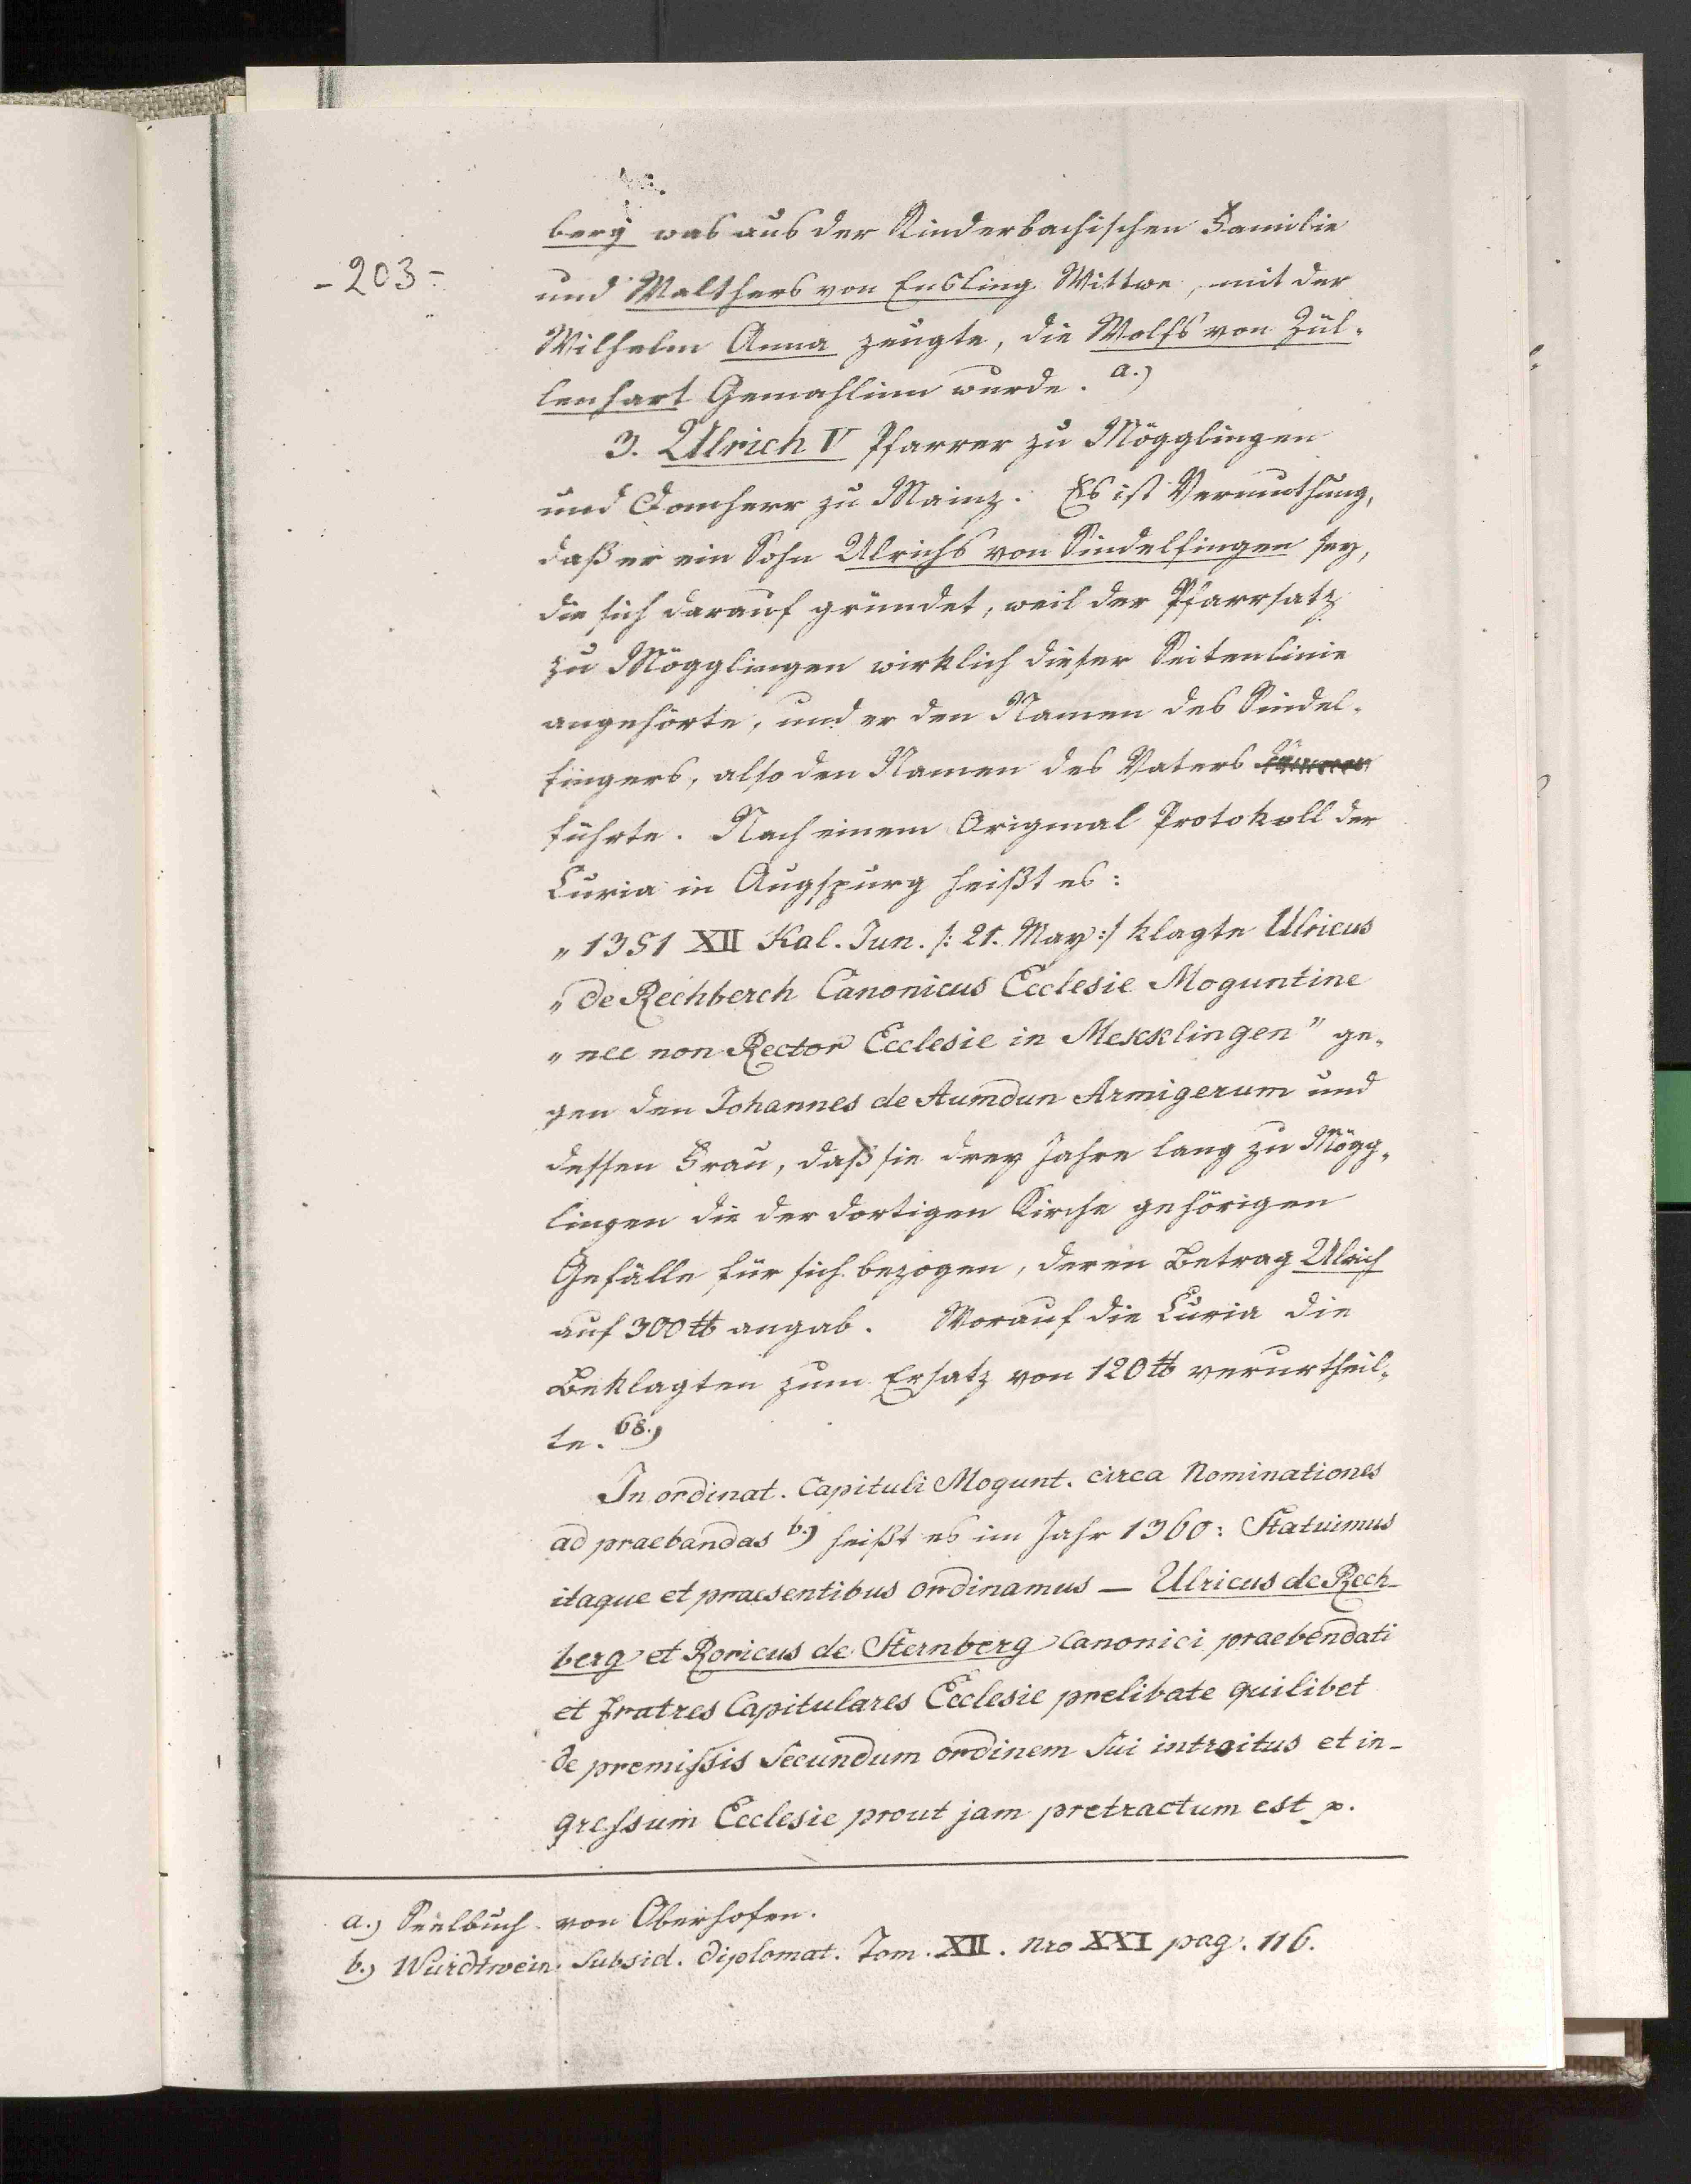 berg was aus der Rinderbachischen Familie
- 203 -
und Walthers von Ensling Wittwe, mit der
Wilhelm Anna zeugte, die Wolfs von Zül-
lenhart Gemahlinn wurde. a.)
3. Ulrich V Pfarrer zu Mögglingen
und Domherr zu Mainz. Es ist Vermuthung,
daß er ein Sohn Ulrichs von Sindelfingen sey,
die sich darauf gründet, weil der Pfarrsatz
zu Mögglingen wirklich dieser Seitenlinie
angehörte, und er den Namen des Sindel-
fingers, also den Namen des Vaters
führte. Nach einem Original Protokoll der
Curia in Augspurg heißt es:
„ 1351 XII Kal. Jun. /: 21. May :/ klagte Ulricus
„ de Rechberch Canonicus Ecclesie Moguntine
„ nec non Rector Ecclesie in Mekklingen" ge-
gen den Johannes de Aumdun Armigerum und
dessen Frau, daß sie drey Jahre lang zu Mögg-
lingen die der dortigen Kirche gehörigen
Gefälle für sich bezogen, deren Betrag Ulrich
auf 300 ℔ angab. Worauf die Curia die
Beklagten zum Ersatz von 120 ℔ verurtheil-
te. 68.)
In ordinat. Capituli Mogunt. circa Nominationes
ad praebandas b.) heißt es im Jahr 1360: Statuimus
itaque et praesentibus ordinamus — Ulricus de Rech-
berg et Roricus de Sternberg Canonici praebendati
et fratres Capitulares Ecclesie prelibate quilibet
de premissis secundum ordinem sui introitus et in-
gressum Ecclesie prout jam pretractum est p.
a.) Seelbuch von Oberhofen.
b.) Würdtwein Subsid. diplomat. Tom. XII. Nro XXI pag. 116.